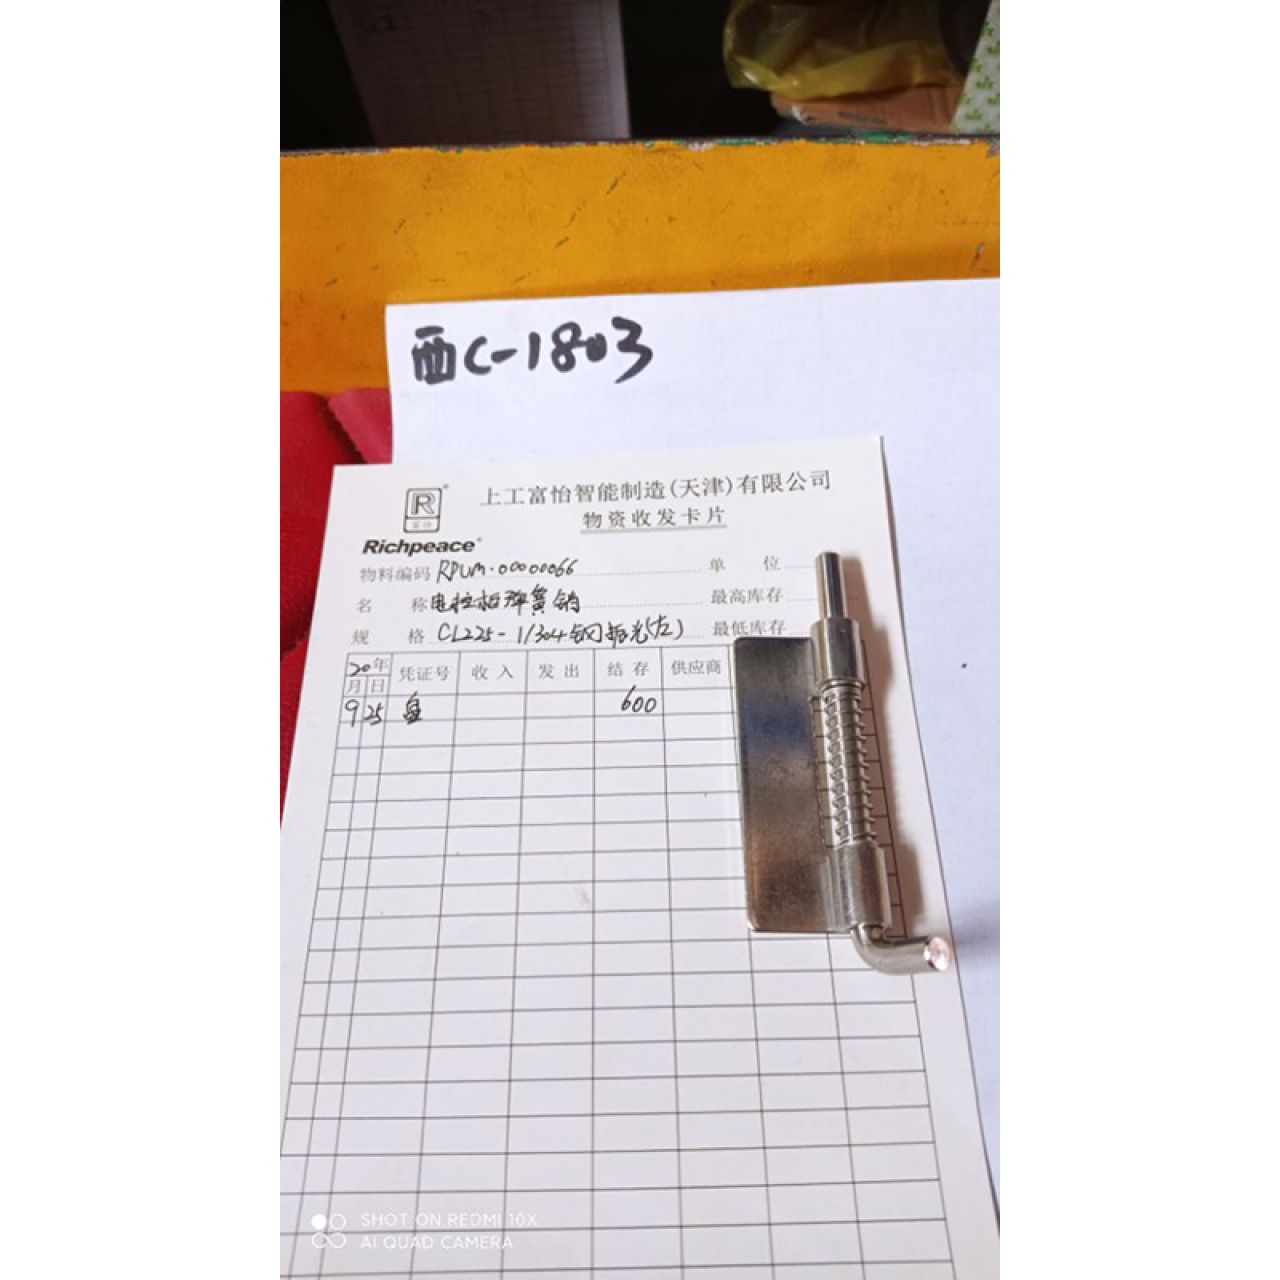 西C-1803
R
富怡
Richpeace
上工富怡智能制造(天津)有限公司
物资收发卡片
物料编码 RPUM.00000066 单 位
名 称 电控柜弹簧销 最高库存
规 格 CL225-1/304钢抛光(左) 最低库存
20年 凭证号 收入 发出 结存 供应商
月 日
9 25 盘 600
SHOT ON REDMI 10X
AI QUAD CAMERA